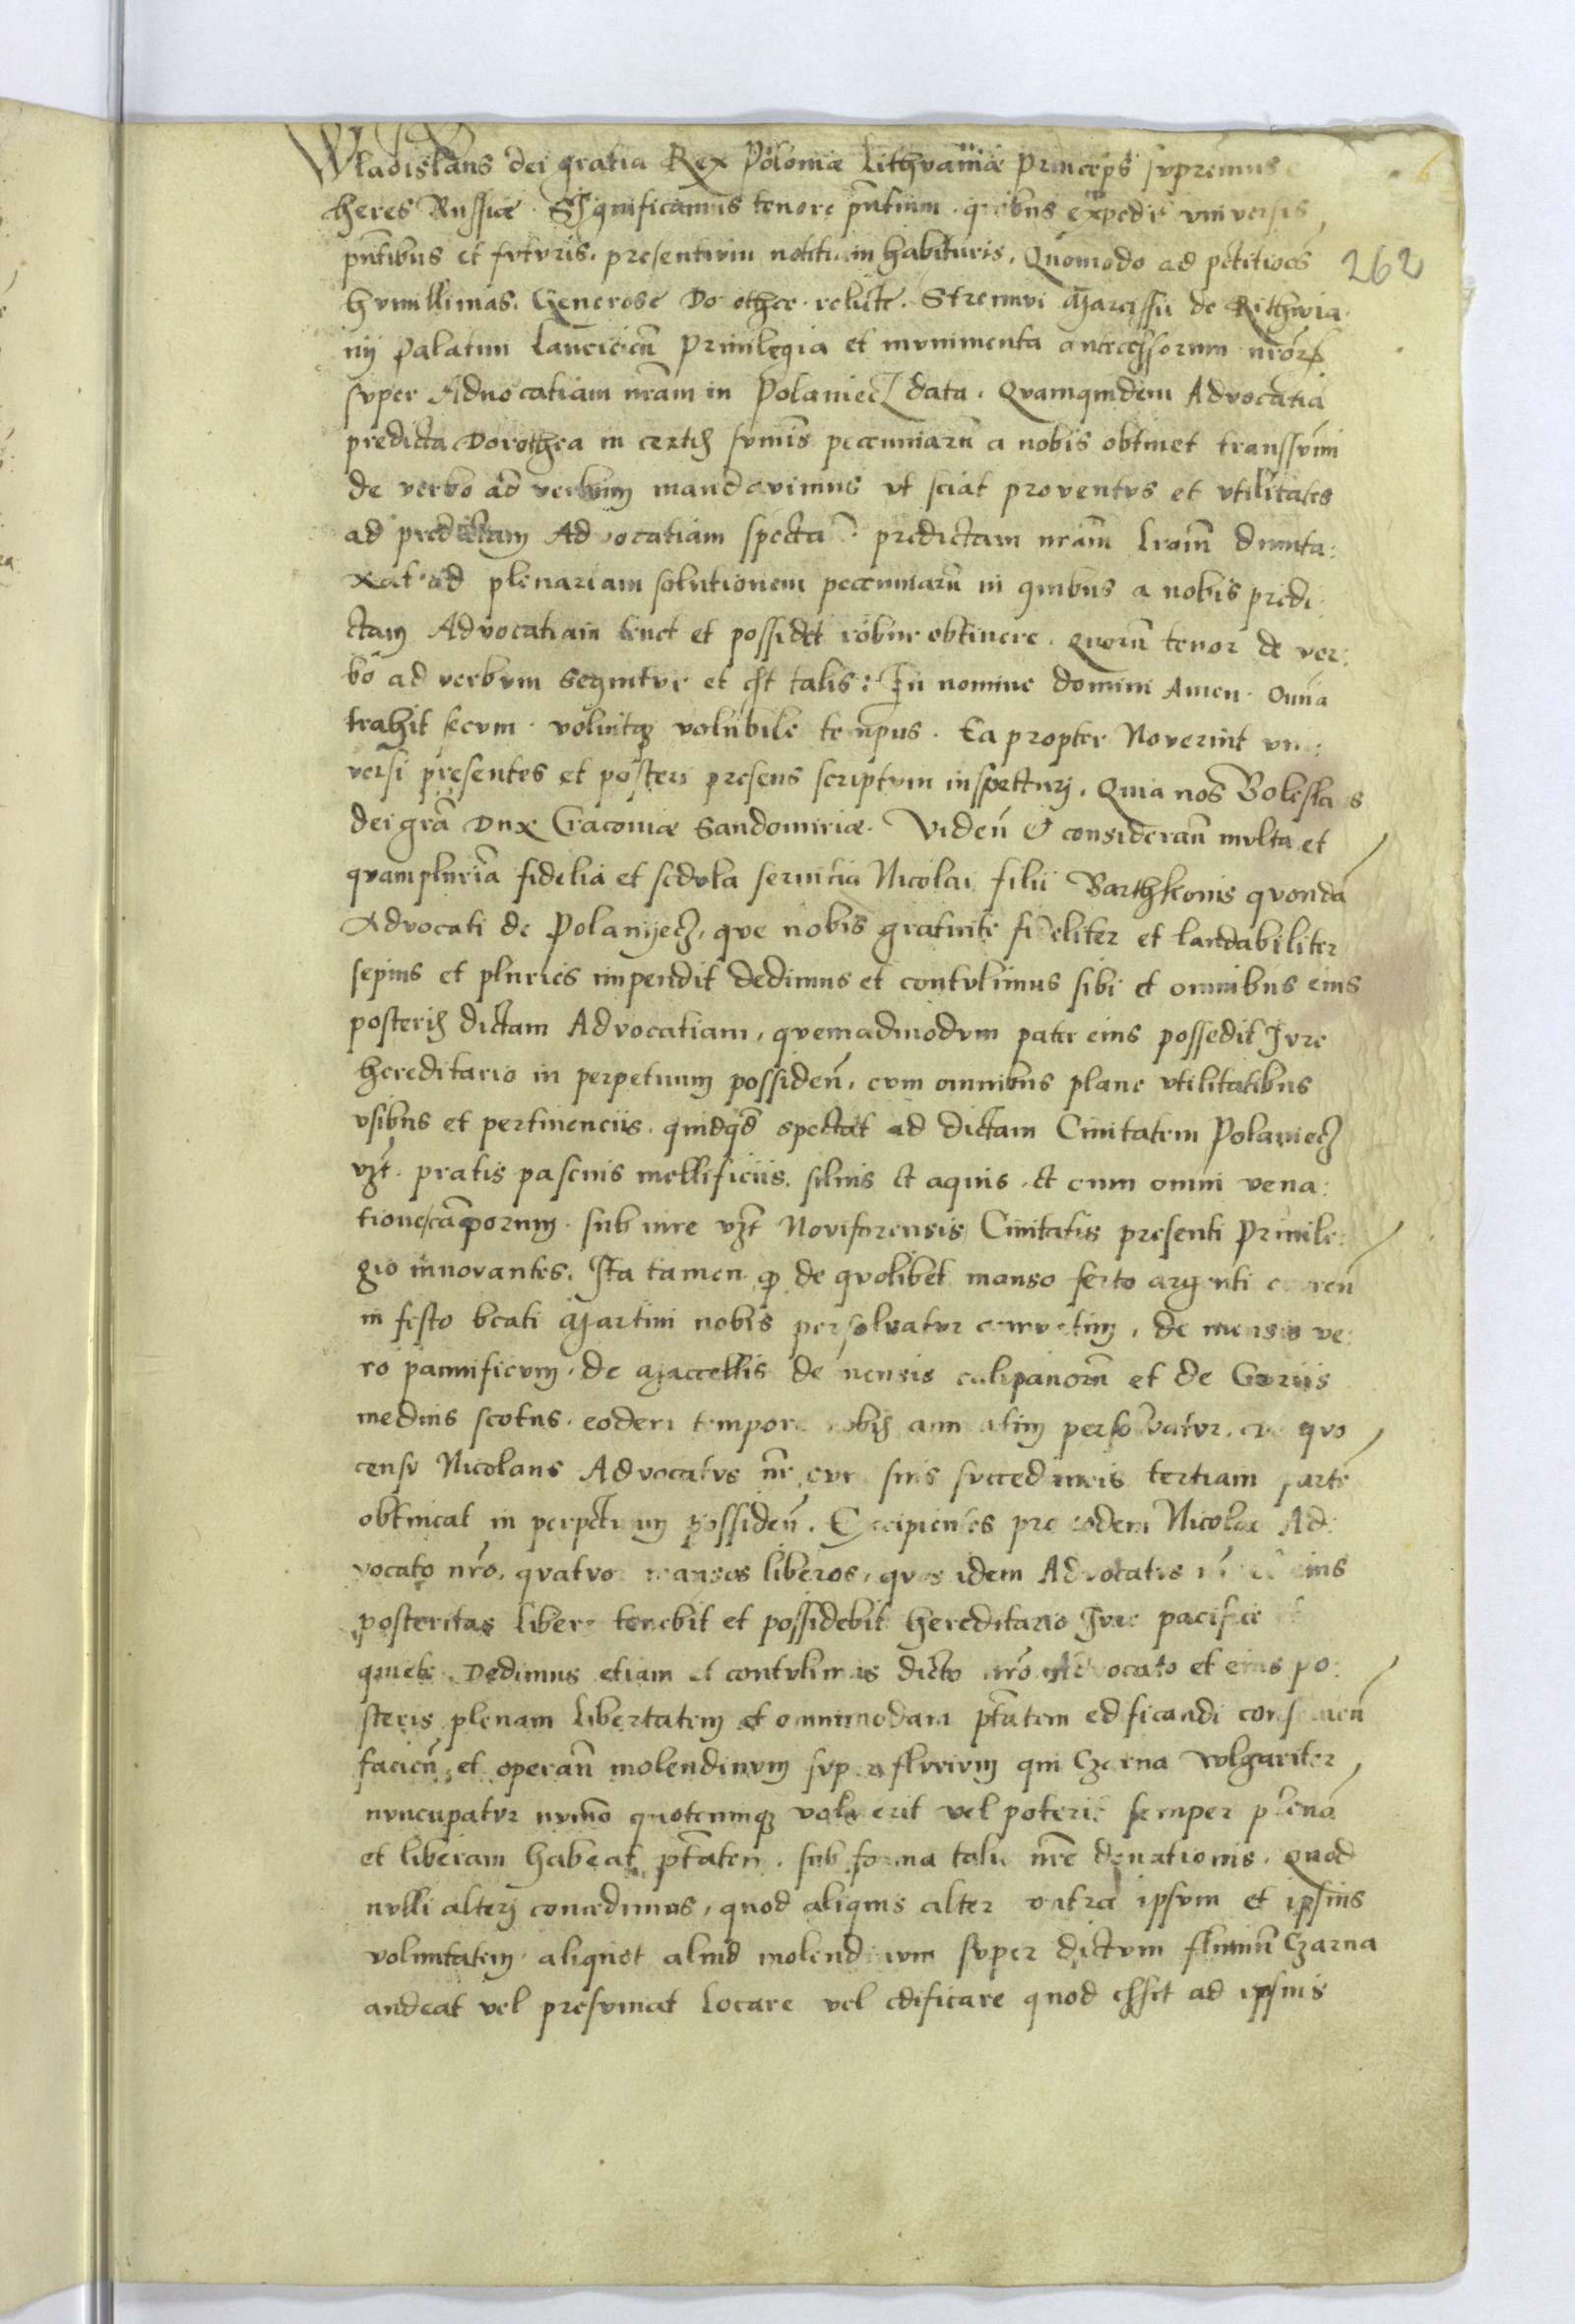 Wladislaus dei gratia Rex Poloniæ Lithvaniæ princeps svpremus
heres Russiæ. Significamus tenore pntium. quibus expedit vniversis
pntibus et fvtvris. presentivm notitiam habituris. Quomodo ad petitioēs
hvmillimas. Generose Dorothee relicte. Strenvi Marcissii de Rithwia
262
nij palatini Lanciciēn privilegia et mvnimenta antecessorum nrōrum
svper Aduocatiam nram in Polaniecz data. Qvamquidem Advocatiā
predicta Dorothea in certis svmis peccuniarū a nobis obtinet transsvmi
de verbo ad verbum mandavimus vt sciat proventvs et vtilitates
ad predictam Advocatiam specta predictam nram dunta:
xat ad plenariam solutionem peccuniarū in quibus a nobis predi
ctam Advocatiam tenet et possidet robur obtinere. quorū tenor de ver:
bo ad verbvm sequitvr et est talis: In nomine domini Amen. Omīa
trahit secvm. voluitqz volubile tempus. Ea propter Noverint vni:
versi presentes et posteri presens scriptvm inspecturj. Quia nos Boleslaus
dei grā Dux Cracoviæ Sandomiriæ. Videñ & considerañ mvlta et
qvampluria fidelia et sedvla seruitia Nicolai filii Barthkonis qvondā
Advocati de Polanyecz, que nobis gratuite fideliter et laudabiliter
sepius et pluries impendit dedimus et contvlimus sibi et omnibus eius
posteris dictam Advocatiam, qvemadmodvm pater eius possedit Jvre
hereditario in perpetuum possideñ, cvm omnibus plane vtilitatibus
vsibus et pertinenciis. quidqd spectat ad dictam Ciuitatem Polaniecz
vzt. pratis pascuis mellificiis. siluis et aquis. et cum omni vena:
tione camporum. sub iure vzt Noviforensis Ciuitatis presenti Priuile:
gio innovantes. Ita tamen q de qvolibet manso ferto argenti
in festo beati Martini nobis persolvatvr annvatim, de mensis ve:
ro pannificvm, de Maccellis de mensis calipanorū et de
medius scotus. eodem tempore nobis annuatim persolvatvr. de qvo
censv Nicolaus Advocatvs nr cvm suis svccedaneis tertiam partē
obtineat in perpetuum possideñ. Excipientes pre eodem Nicolao Ad:
vocato nrō. qvatvor mansos liberos, qvos idem Advocatvs et eius
posteritas libere tenebit et possidebit hereditario Jvre pacifice et
quiete. Dedimus etiam et contvlimus dicto nrō Advocato et eius po:
steris plenam libertatem et omnimodam ptātem edificandi
facieñ et operañ molendinvm svper flvvivm qui Czarna vvlgariter
nvncupatvr nvmo quotcunqz volverit vel poterit semper plenā
et liberam habeat ptātem. sub forma talis nrē donationis. Quod
nvlli alterj concedimus, quod aliquis alter contra ipsvm et ipsius
voluntatem aliquot aliud molendinum svper dictvm fluuiū Czarna
audeat vel presvmat locare vel edificare quod esset ad ipsius